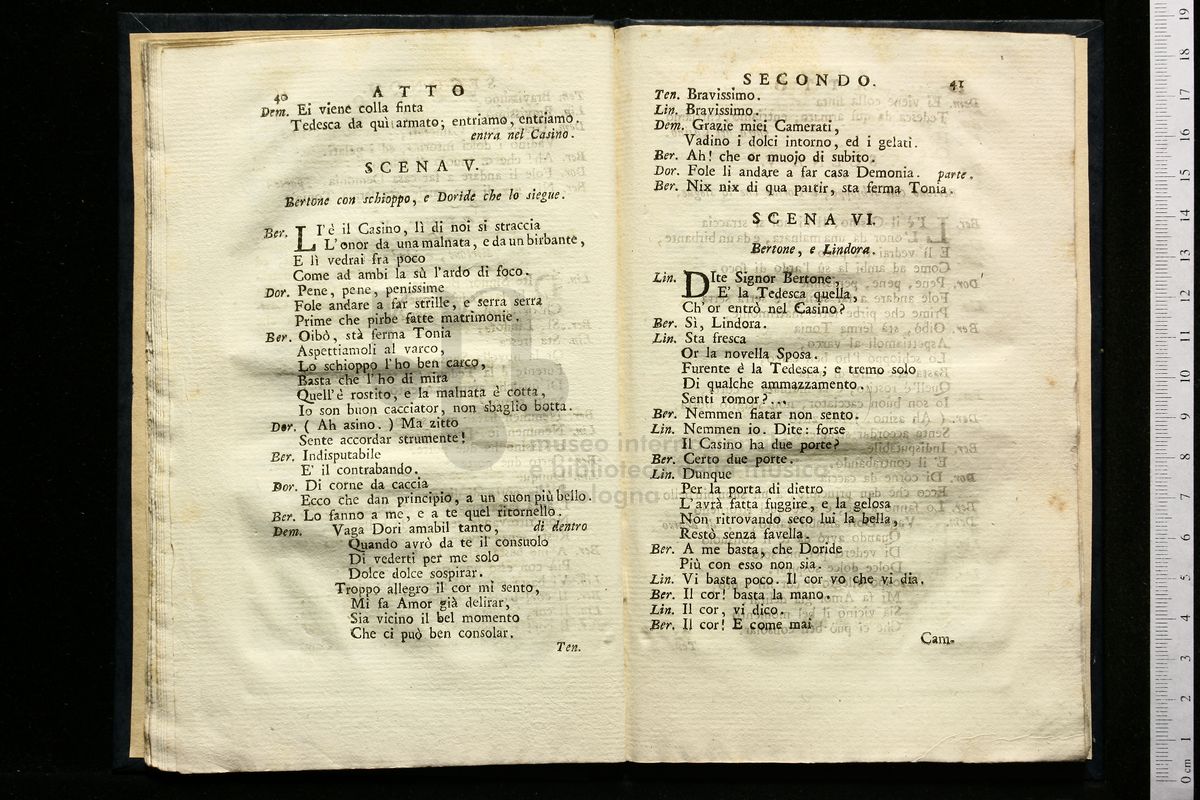 40
ATTO
Dem. Ei viene colla finta
Tedesca da quì armato; entriamo, entriamo.
entra nel Casino.
SCENA V.
Bertone con schioppo, e Doride che lo siegue.
Ber. LI'è il Casino, lì di noi si straccia
L'onor da una malnata, e da un birbante,
E lì vedrai fra poco
Come ad ambi la sù l'ardo di foco.
Dor. Pene, pene, penissime
Fole andare a far strille, e serra serra
Prime che pirbe fatte matrimonie.
Ber. Oibò, stà ferma Tonia
Aspettiamoli al varco,
Lo schioppo l'ho ben carco,
Basta che l'ho di mira
Quell'è rostito, e la malnata è cotta,
Io son buon cacciator, non sbaglio botta.
Dor. ( Ah asino. ) Ma zitto
Sente accordar strumente!
Ber. Indisputabile
E' il contrabando.
Dor. Di corne da caccia
Ecco che dan principio, a un suon più bello.
Ber. Lo fanno a me, e a te quel ritornello.
Dem. Vaga Dori amabil tanto, di dentro
Quando avrò da te il consuolo
Di vederti per me solo
Dolce dolce sospirar.
Troppo allegro il cor mi sento,
Mi fa Amor già delirar,
Sia vicino il bel momento
Che ci può ben consolar.
Ten.
SECONDO.
41
Ten. Bravissimo.
Lin. Bravissimo.
Dem. Grazie miei Camerati,
Vadino i dolci intorno, ed i gelati.
Ber. Ah! che or muojo di subito.
Dor. Fole lì andare a far casa Demonia. parte.
Ber. Nix nix di qua partir, sta ferma Tonia.
SCENA VI.
Bertone, e Lindora.
Lin. DIte Signor Bertone,
E' la Tedesca quella,
Ch'or entrò nel Casino?
Ber. Sì, Lindora.
Lin. Sta fresca
Or la novella Sposa.
Furente è la Tedesca; e tremo solo
Di qualche ammazzamento.
Senti romor?...
Ber. Nemmen fiatar non sento.
Lin. Nemmen io. Dite: forse
Il Casino ha due porte?
Ber. Certo due porte.
Lin. Dunque
Per la porta di dietro
L'avrà fatta fuggire, e la gelosa
Non ritrovando seco lui la bella,
Restò senza favella.
Ber. A me basta, che Doride
Più con esso non sia.
Lin. Vi basta poco. Il cor vo che vi dia.
Ber. Il cor! basta la mano.
Lin. Il cor, vi dico.
Ber. Il cor! E come mai
Cam-
museo
e biblioteca musica
bologna
0 cm 1 2 3 4 5 6 7 8 9 10 11 12 13 14 15 16 17 18 19